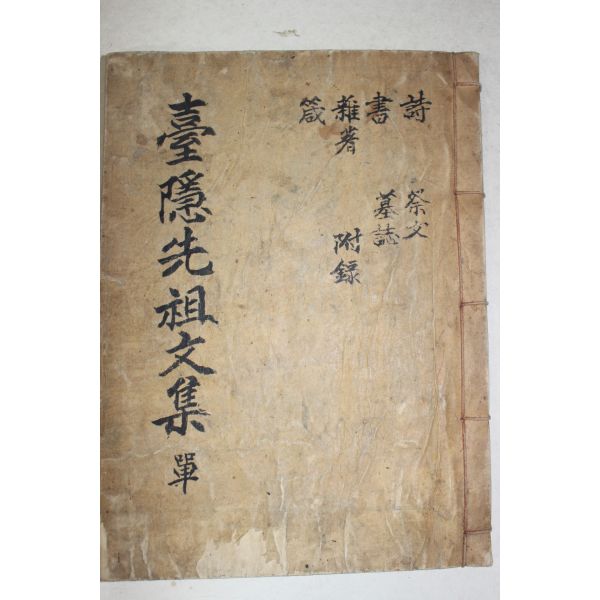 詩 祭文
書 墓誌
雜著 附錄
箴
臺隱先祖文集 單